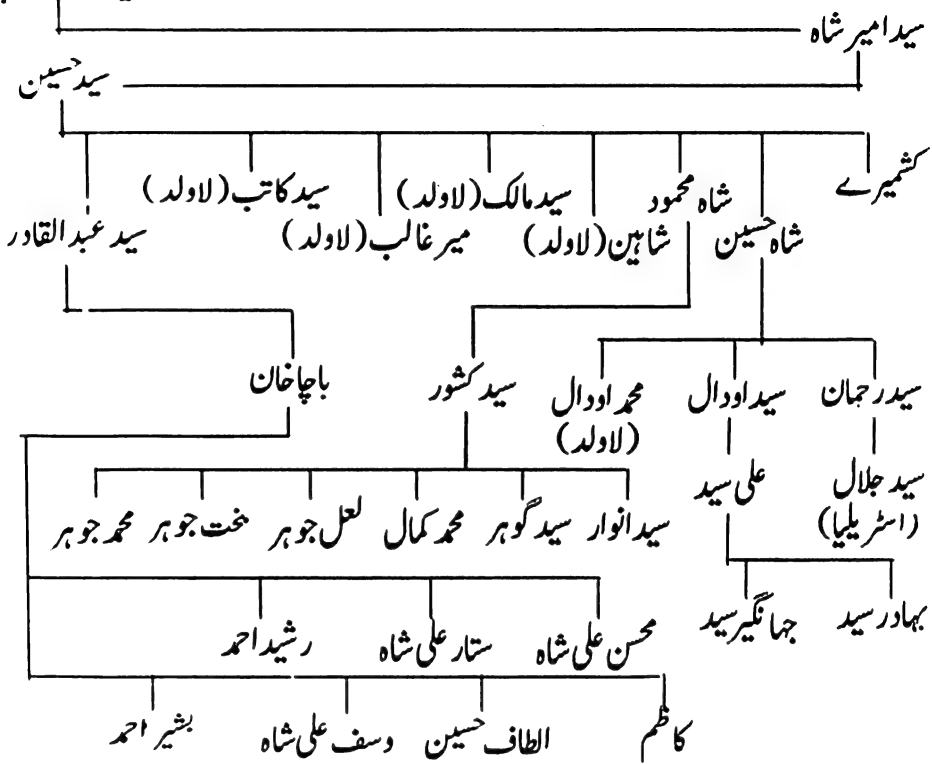 سید امیر شاہ
سید حسین
کشمیرے
شاہ حسین
شاہ محمود
شاہین (لاولد)
سید مالک (لاولد)
میر غالب (لاولد)
سید کاتب (لاولد)
سید عبد القادر
سید رحمان
سید اودال
محمد اودال
(لاولد)
سید کشور
باچا خان
سید جلال
(اسٹریلیا)
علی سید
سید انوار
سید گوہر
محمد کمال
لعل جوہر
بخت جوہر
محمد جوہر
بہادر سید
جہانگیر سید
محسن علی شاہ
ستار علی شاہ
رشید احمد
کاظم
الطاف حسین
وسف علی شاہ
بشیر احمد